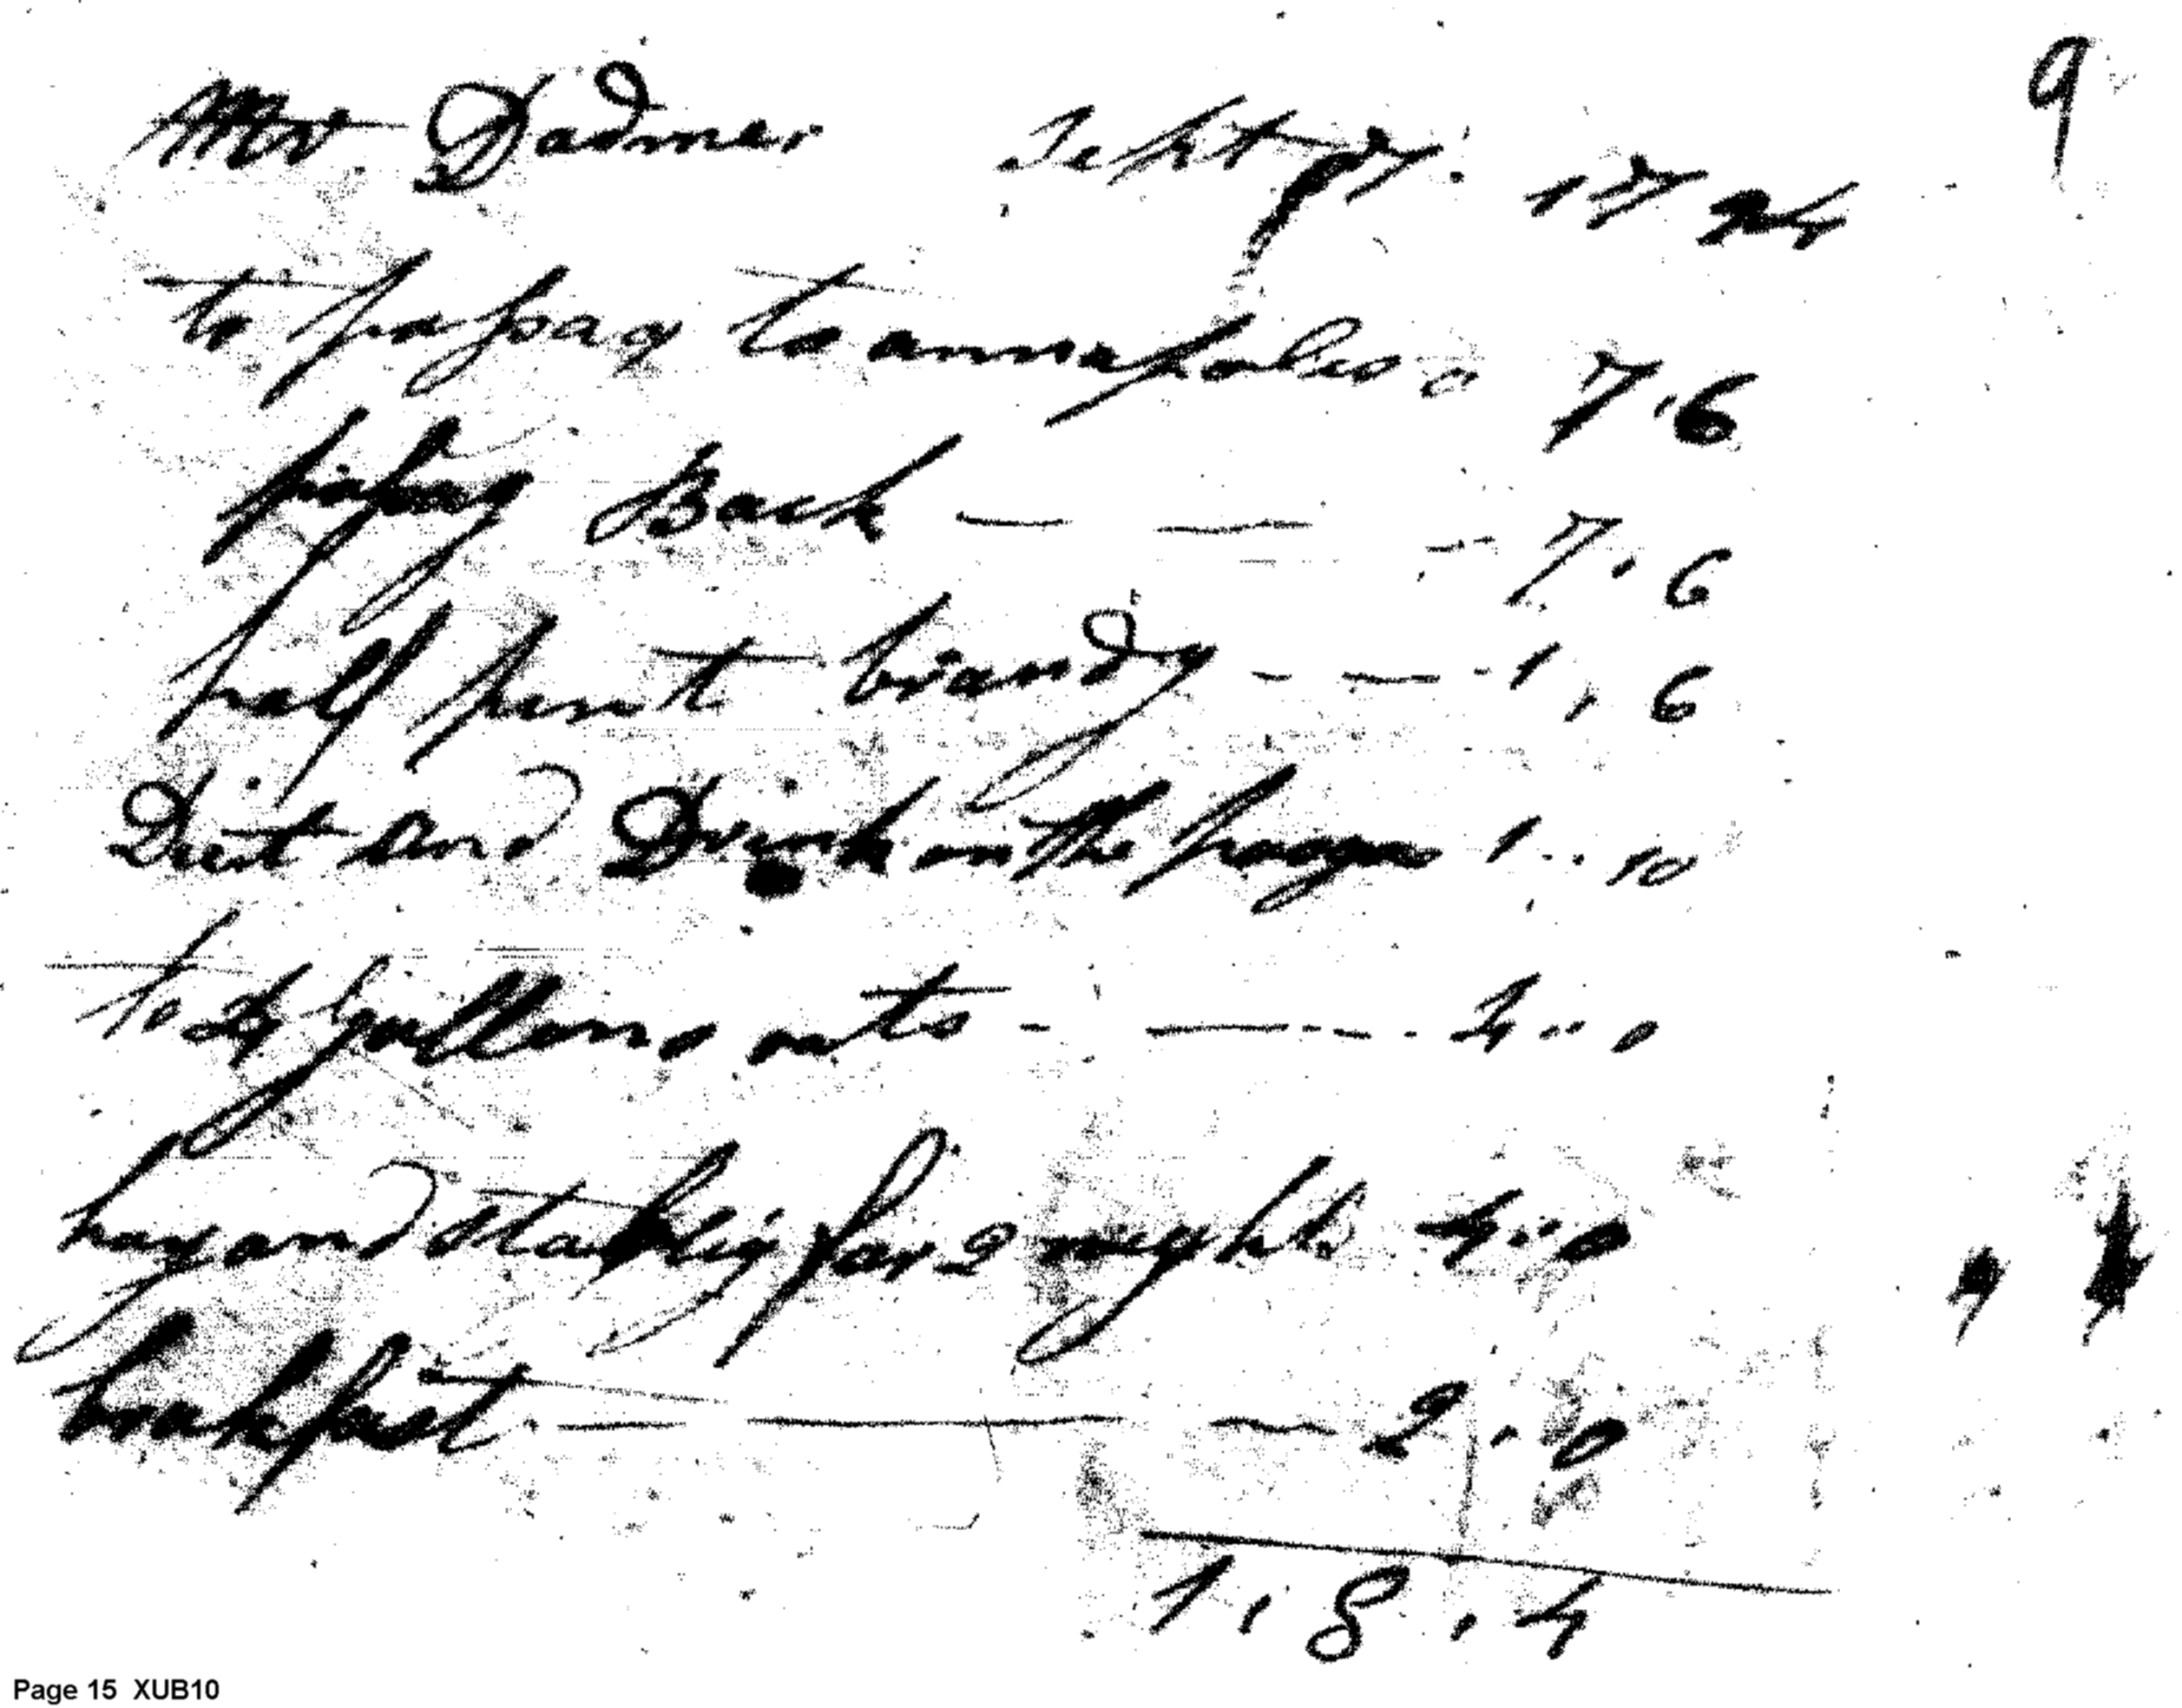 Mr Dadmer Sept 7: 17 24 9
to passag to annapoles 0 7.6
passag Back — — - 7.6
half pint brandy - — - 1, 6
Dieit and Drink on the passages 1..10
to 4 gallons oats - — - - 4..0
hay and stablig for 2 nights 4..0
brakfast — — — 2.0
1.8.4
Page 15 XUB10